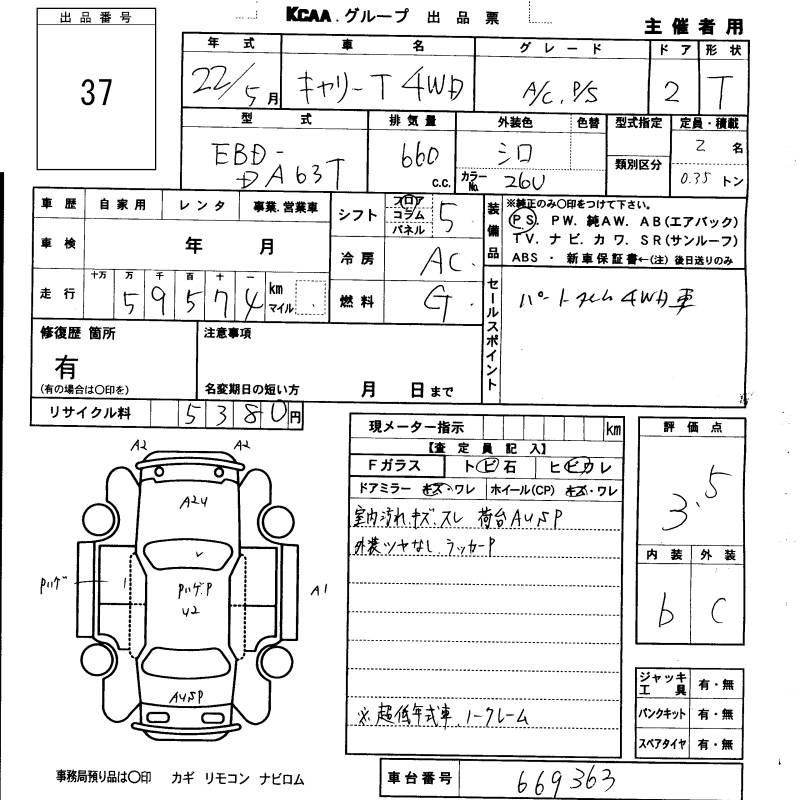 KCAA.グループ 出品票
主催者用
出品番号
37
年式 車名 グレード ドア 形状
22/5月 キャリーT 4WD A/C. P/S 2 T
型式 排気量 外装色 色替 型式指定 定員・積載
EBD-DA63T 660 c.c. シロ 2名
カラーNo. 26U 類別区分 0.35トン
車歴 自家用 レンタ 事業.営業車
シフト フロア コラム パネル 5
車検 年 月
冷房 AC
走行 十万 万 千 百 十 一
5 9 5 7 4 km マイル
燃料 G
装備品
※純正のみ〇印をつけて下さい。
PS. PW. 純AW. AB(エアバック)
TV. ナビ. カワ. SR(サンルーフ)
ABS ・ 新車保証書←(注)後日送りのみ
セールスポイント
パートタイム4WD車
修復歴 箇所
有
(有の場合は〇印を)
注意事項
名変期日の短い方 月 日まで
リサイクル料 5380円
現メーター指示 km
【査定員記入】
Fガラス トビ石 ヒビワレ
ドアミラー キズ・ワレ ホイール(CP) キズ・ワレ
室内汚れ.キズ.スレ 荷台AUSP
外装ツヤなし.ラッカーP
※超低年式車.ノークレーム
評価点
3.5
内装 外装
b C
A2 A2
A2U
Pハゲ
Pハゲ.P
U2
A1
AUSP
ジャッキ工具 有・無
パンクキット 有・無
スペアタイヤ 有・無
事務局預り品は〇印 カギ リモコン ナビロム
車台番号 669363